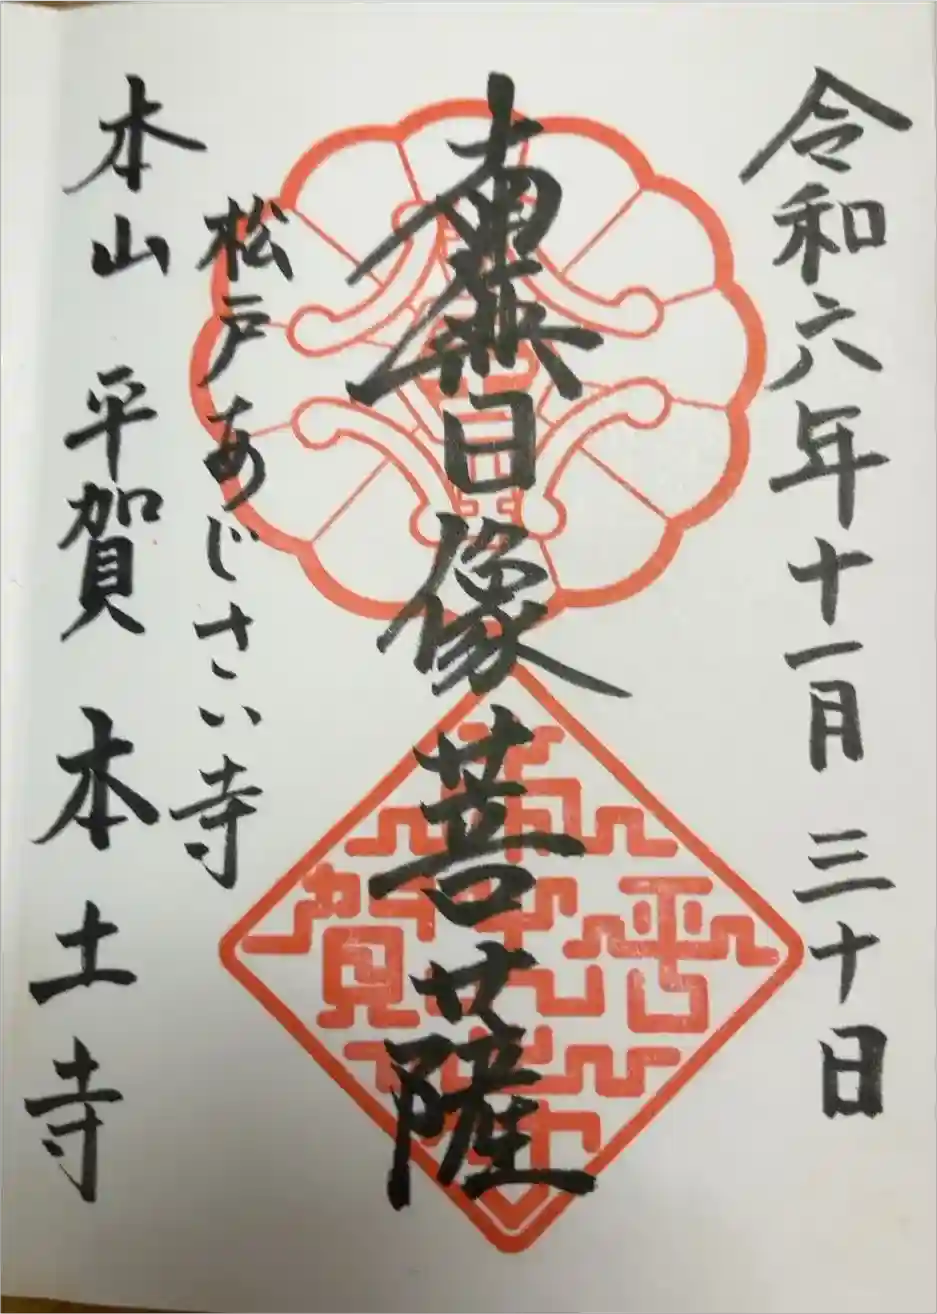 令和六年十一月三十日
南無日像菩薩
松戸あじさい寺
本山 平賀 本土寺